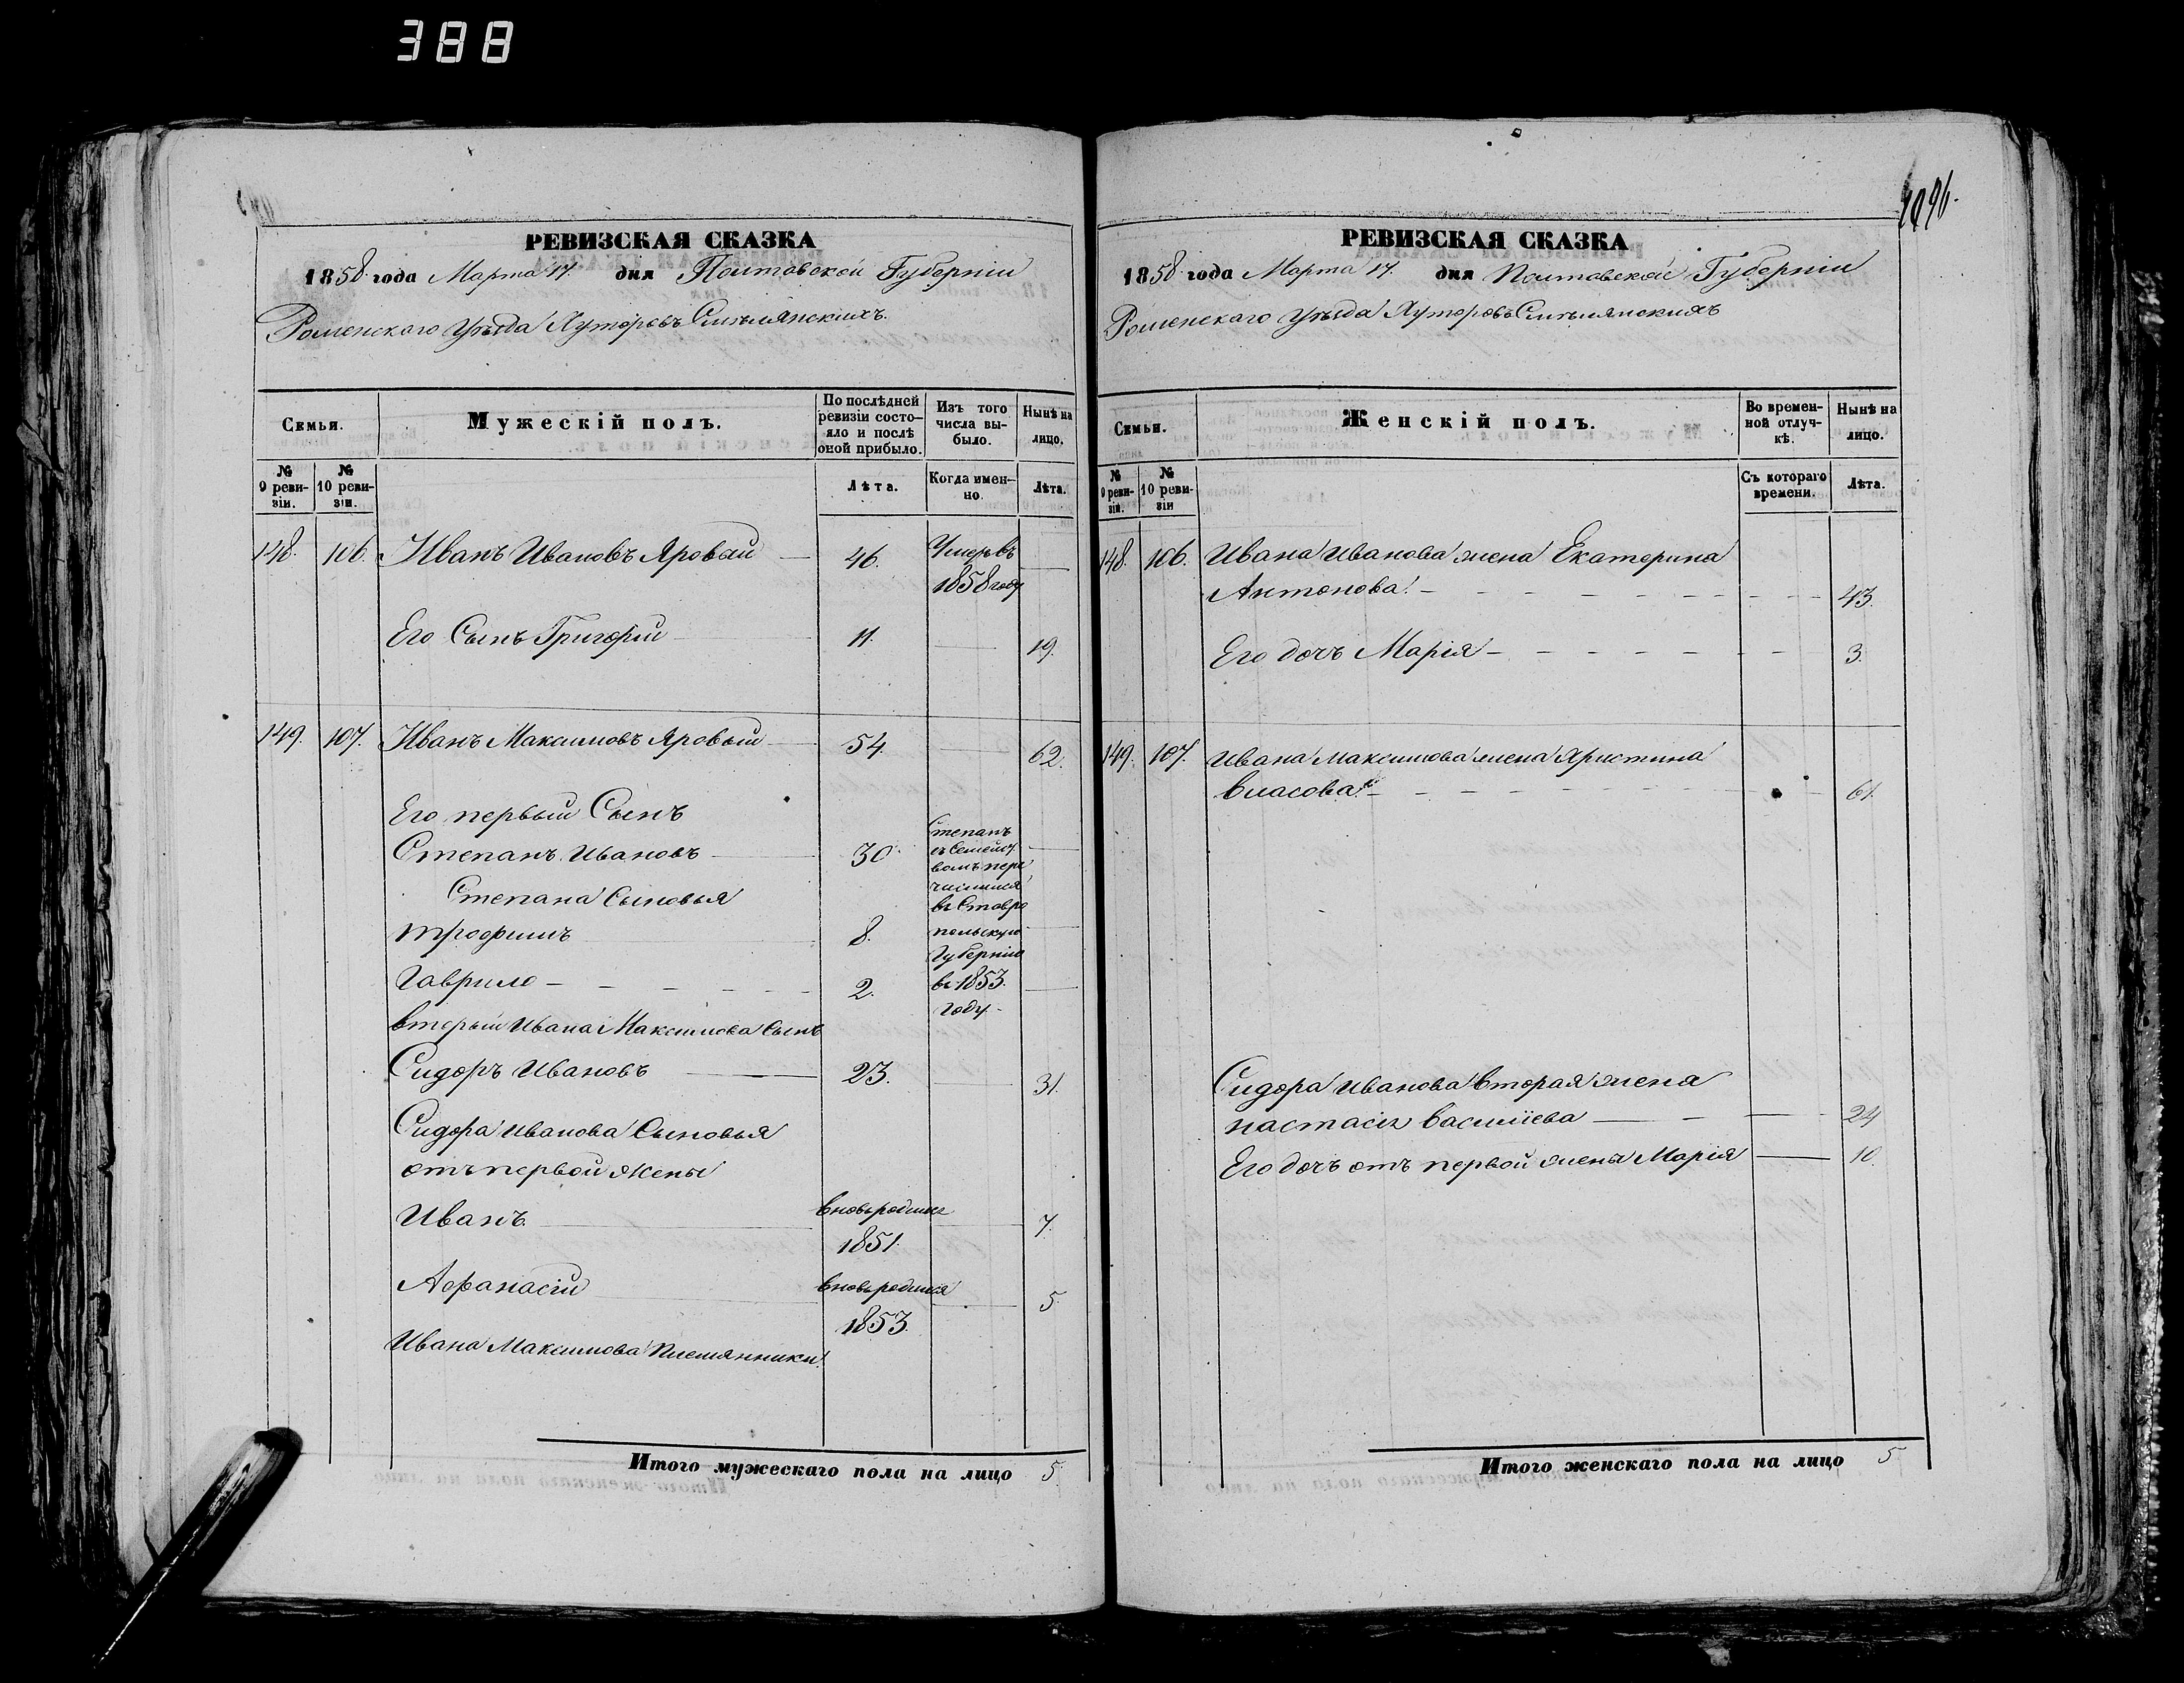 388
1096.
РЕВИЗСКАЯ СКАЗКА
1858 года Марта 17. дня Полтавской Губерніи
Роменскаго Уѣзда Хуторовъ Смѣлянскихъ.
Семьи.
Мужескій полъ.
По послѣдней ревизіи состо-
яло и послѣ оной прибыло.
Изъ того числа вы-
было.
Нынѣ на лицо.
№ 9 реви-
зіи.
№ 10 реви-
зіи.
Лѣта.
Когда имен-
но.
Лѣта.
148. 106. Иванъ Ивановъ Яровый 46. Умеръ въ
1858 году
Его Сынъ Григорій 11. 19.
149. 107. Иванъ Максимовъ Яровый 54 62.
Его первый Сынъ
Степанъ Ивановъ 30
Степана Сыновья
Трофимъ 8.
Гаврило 2.
Степанъ
съ Семейст
вомъ пере
числился
въ Ставро
польскую
Губернію
въ 1853.
году
вторый Ивана Максимова Сынъ
Сидоръ Ивановъ 23. 31.
Сидора Иванова Сыновья
отъ первой жены
Иванъ вновьродился 7.
1851.
Афанасій вновьродился 5.
1853.
Ивана Максимова Племянники
Итого мужескаго пола на лицо 5.
РЕВИЗСКАЯ СКАЗКА
1858 года Марта 17. дня Полтавской Губерніи
Роменскаго Уѣзда Хуторовъ Смѣлянскихъ
Семьи.
Женскій полъ.
Во времен-
ной отлуч-
кѣ.
Нынѣ на лицо.
№ 9 реви-
зіи.
№ 10 реви-
зіи
Съ котораго времени.
Лѣта.
148. 106. Ивана Иванова жена Екатерина
Антонова 43.
Его дочь Марія 3.
149. 107. Ивана Максимова жена Христина
власова 61.
Сидора Иванова вторая жена
настасія василіева 24
Его дочь отъ первой жены Марія 10.
Итого женскаго пола на лицо 5